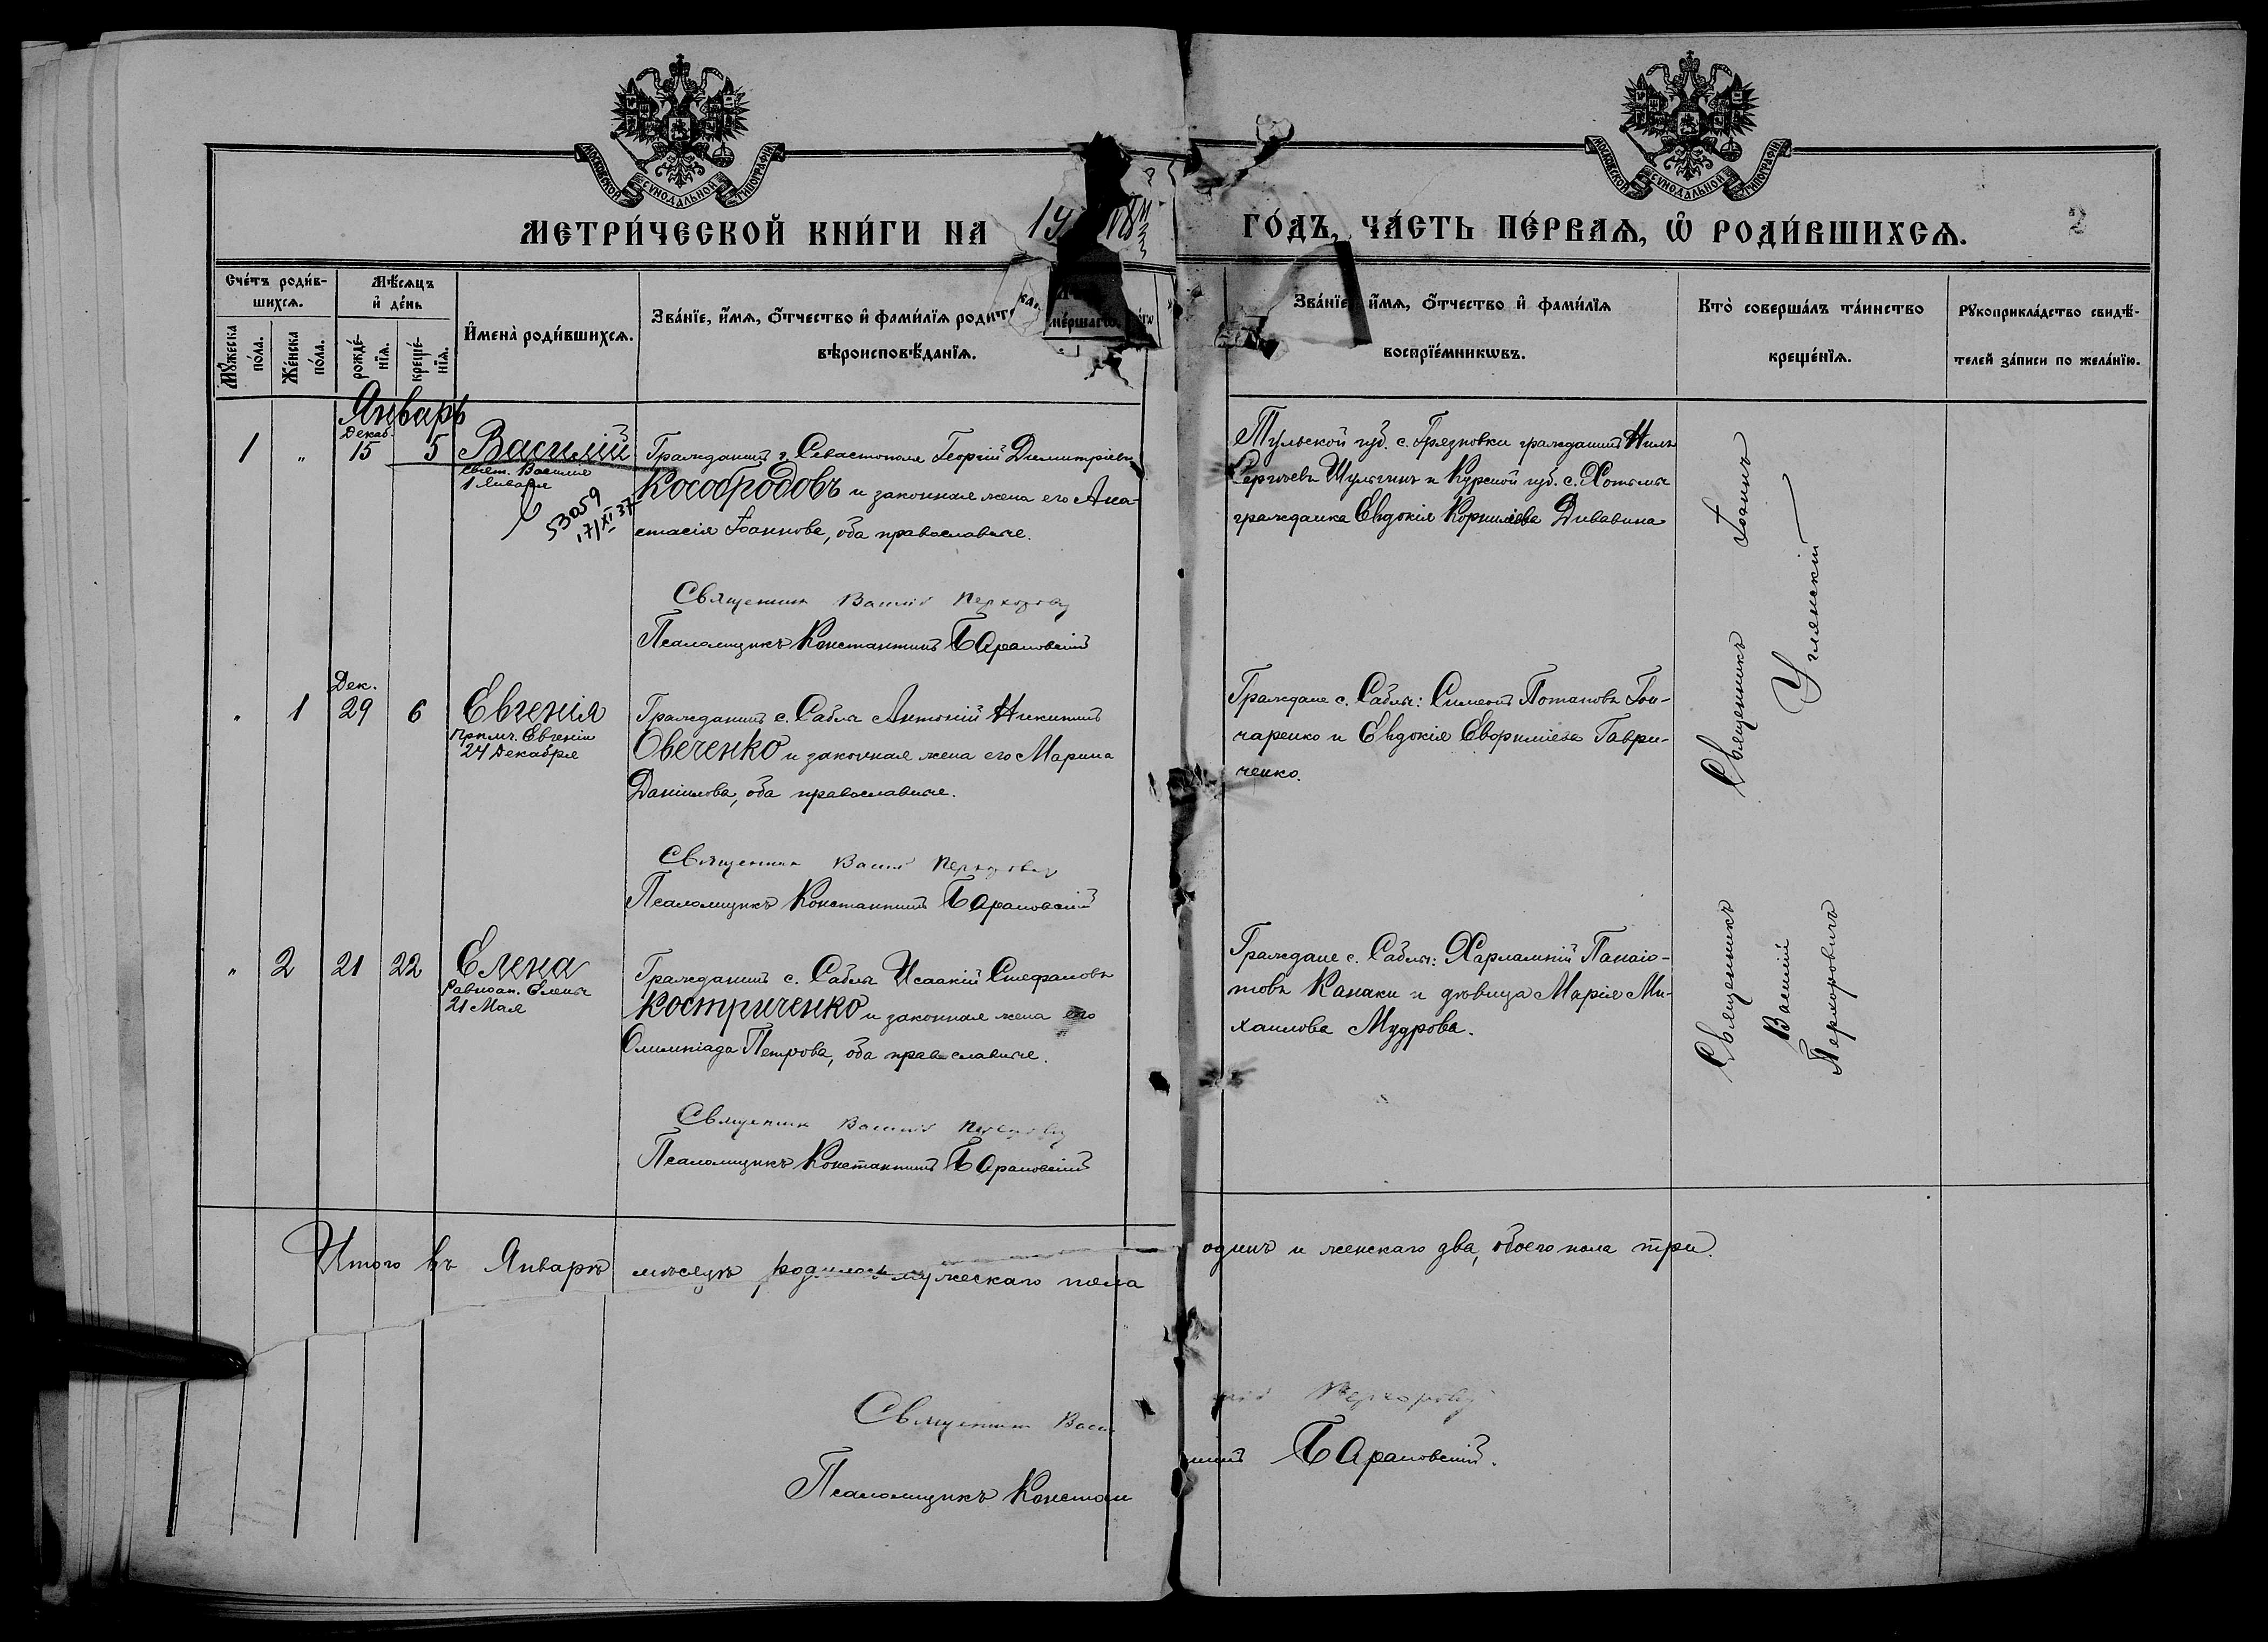 МОСКОВСКОЙ СУНОДАЛЬНОЙ ТИПОГРАФІИ
МОСКОВСКОЙ СУНОДАЛЬНОЙ ТИПОГРАФІИ
МЕТРИ́ЧЕСКОЙ КНИ́ГИ НА
ГО́ДЪ, ЧА́СТЬ ПЕ́РВАѦ, Ѡ҆ РОДИ́ВШИХСѦ.
2
Сче́тъ роди́в-
шихсѧ.
Мѣ́сѧцъ
и҆ де́нь
Мꙋ́жеска
по́ла.
Же́нска
по́ла.
рожде́-
нїѧ.
креще́-
нїѧ.
И҆мена̀ роди́вшихсѧ.
Зва́нїе, и҆́мѧ, ѻ҆́тчество и҆ фами́лїѧ родит
вѣроисповѣ́данїѧ.
Зва́нїе, и҆́мѧ, ѻ҆́тчество и҆ фами́лїѧ
воспрїе́мникѡвъ.
Кто̀ соверша́лъ та́инство
креще́нїѧ.
Рꙋкоприкла́дство свидѣ́-
телей за́писи по жела́нїю.
Январь
1 " Декаб. 15 5 Василій
свят. Василія
1 Января
53059
17/XI 37
Гражданинъ г. Севастополя Георгій Димитріевъ
Кособродовъ и законная жена его Ана-
стасія Іоаннова, оба православные.
Священник Василій Перхорович
Псаломщикъ Константинъ Барановскій
Тульской губ. с. Грязновки гражданинъ Нилъ
Сергѣевъ Шулгинъ и Курской губ. с.
гражданка Евдокія Корниліева
Священникъ Іоаннъ
Углянскій
" 1 Дек. 29 6 Евгенія
прпмч. Евгеніи
24 Декабря
Гражданинъ с. Саблы Антоній Никитинъ
Овеченко и законная жена его Марина
Даніилова, оба православные.
Священник Василій Перхорович
Псаломщикъ Константинъ Барановскій
Граждане с. Саблы: Симеонъ Потаповъ Гон-
чаренко и Евдокія Гаври-
ченко.
" 2 21 22 Елена
Равноап. Елены
21 Мая
Гражданинъ с. Саблы Исаакій Стефановъ
Костриченко и законная жена его
Олимпіада Петрова, оба православные.
Священник Василій Перхорович
Псаломщикъ Константинъ Барановскій
Граждане с. Саблы: Харлампій Панаіо-
товъ Канаки и дѣвица Марія Ми-
хаилова Мудрова.
Священникъ
Василій
Перхоровичъ
Итого въ Январѣ мѣсяцѣ родилось мужескаго пола
одинъ и женскаго два, обоего пола три.
Священник Васи
лій Перхорович
Псаломщикъ Констан
тинъ Барановскій.